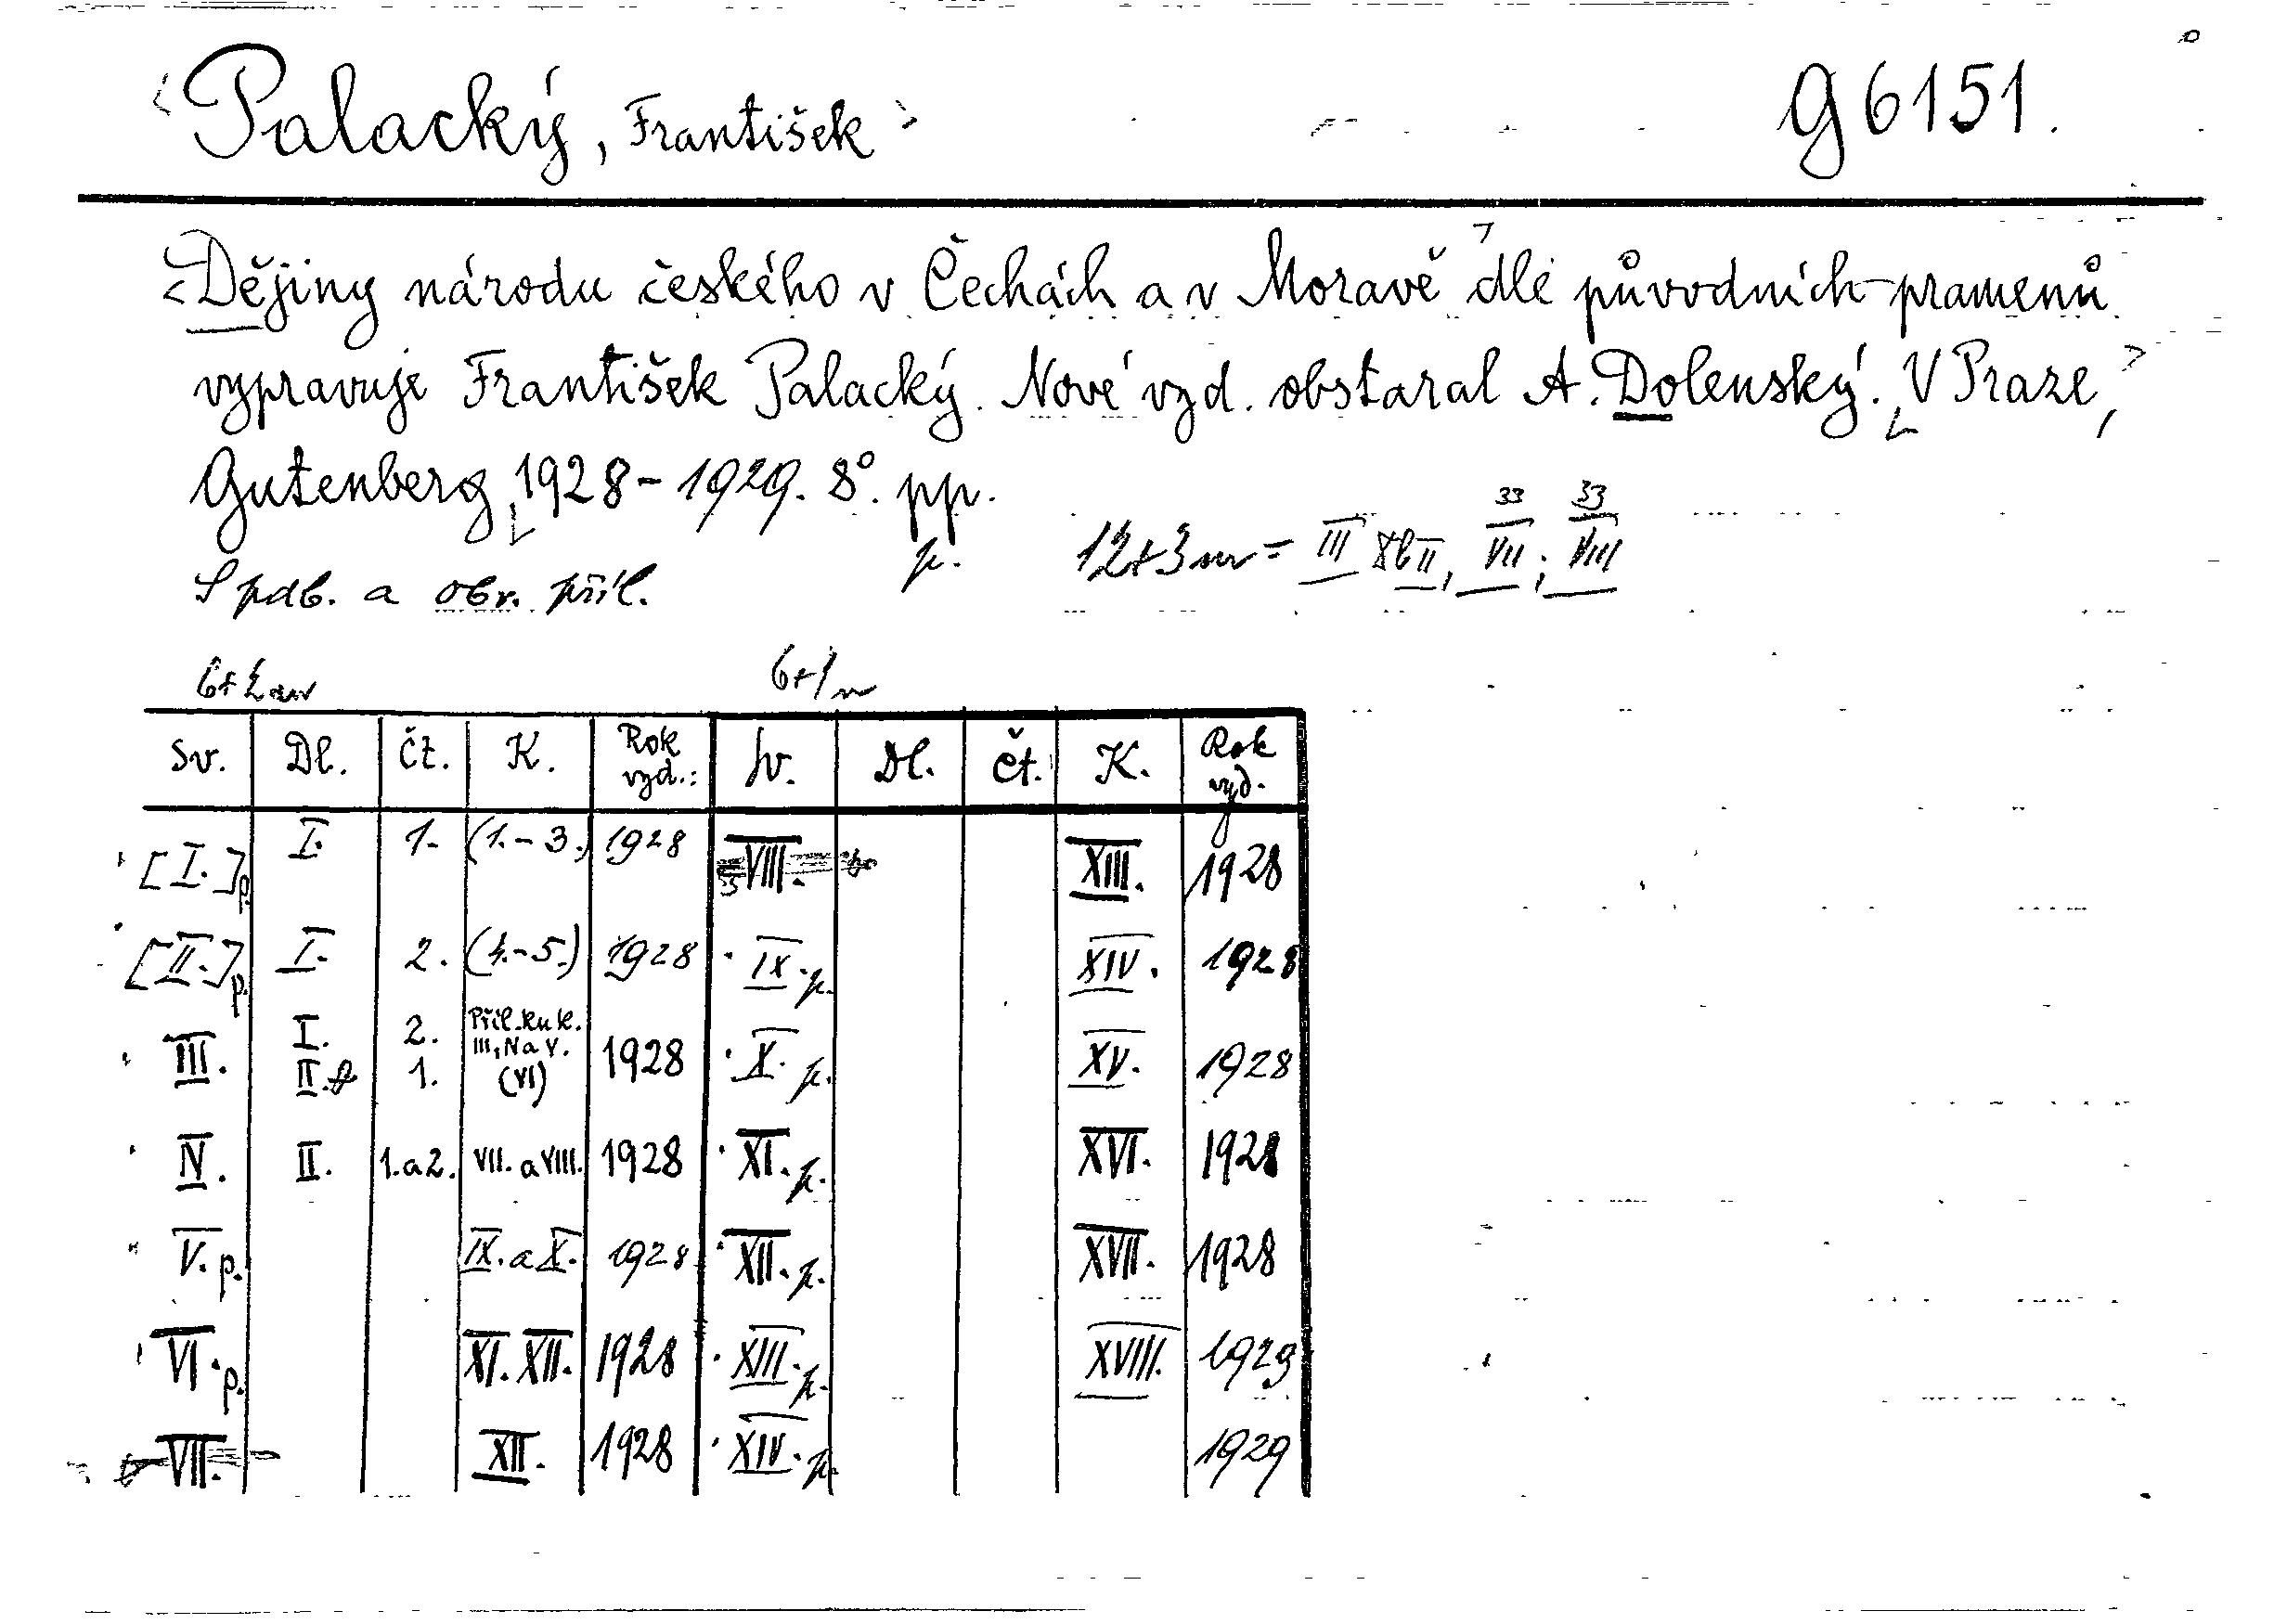 <Palacký, František> g 6151.
<Dějiny národu českého v Čechách a v Moravě dle původních pramenů
vypravuje František Palacký. Nové vyd. obstaral A. Dolenský. V Praze,
Gutenberg, 1928-1929. 8°. pp.
S pdb. a obr. příl. p. 12+3 III II, VII; VIII
33 33
Sv. Dl. Čt. K. Rok vyd.: Sv. Dl. Čt. K. Rok vyd.
[I.] p. I. 1. (1.-3.) 1928 VIII. XIII. 1928
[II.] p. I. 2. (4.-5.) 1928 IX. p. XIV. 1928
III. I. 2. Příl. ku k. III, IV a V. 1928 X. p. XV. 1928
II. 1. (VI)
IV. II. 1. a 2. VII. a VIII. 1928 XI. p. XVI. 1928
V. p. IX. a X. 1928 XII. p. XVII. 1928
VI. p. XI. XII. 1928 XIII. p. XVIII. 1929
VII. XII. 1928 XIV. p. 1929